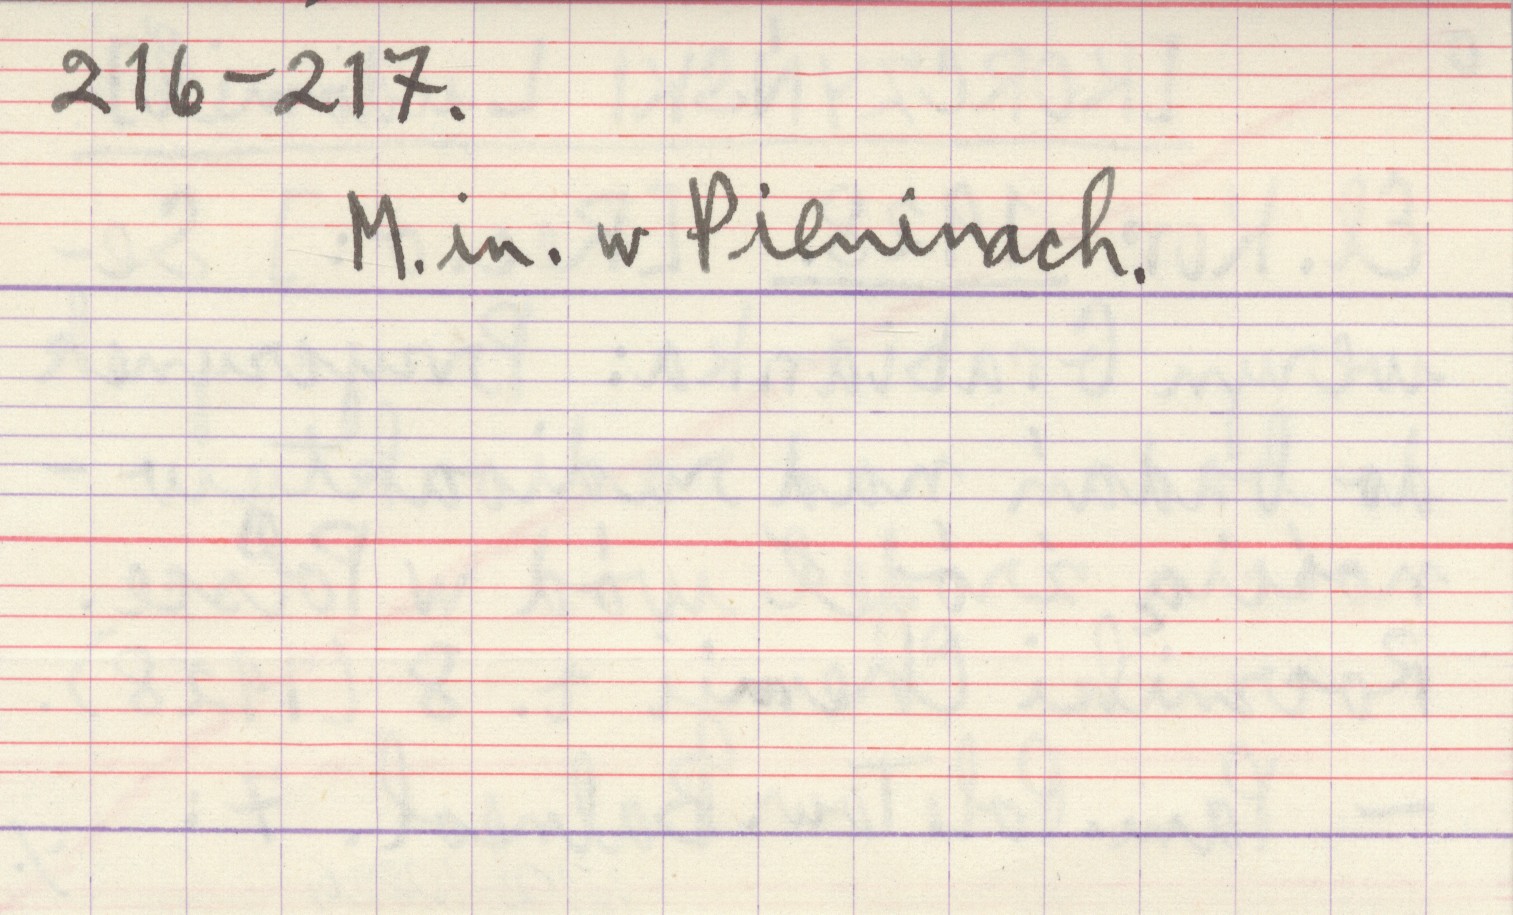 216-217.
M. in. w Pieninach.